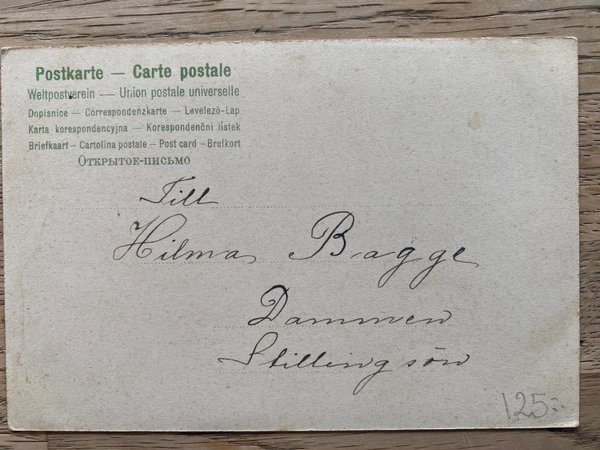 Postkarte — Carte postale
Weltpostverein — Union postale universelle
Dopisnice — Correspondenzkarte — Levelező-Lap
Karta korespondencyjna — Korespondenční lístek
Briefkaart — Cartolina postale — Post card — Brefkort
Открытое-письмо
Till
Hilma Bagge
Dammen
Stillingsön
125:-